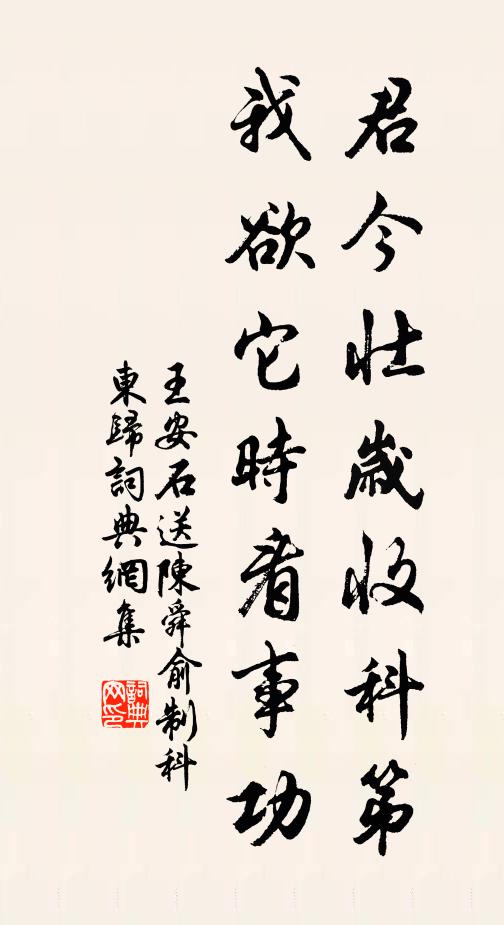 君今壯歲收科第
我欲它時看事功
王安石送陳舜俞制科
東歸詞典網集
詞典
网印